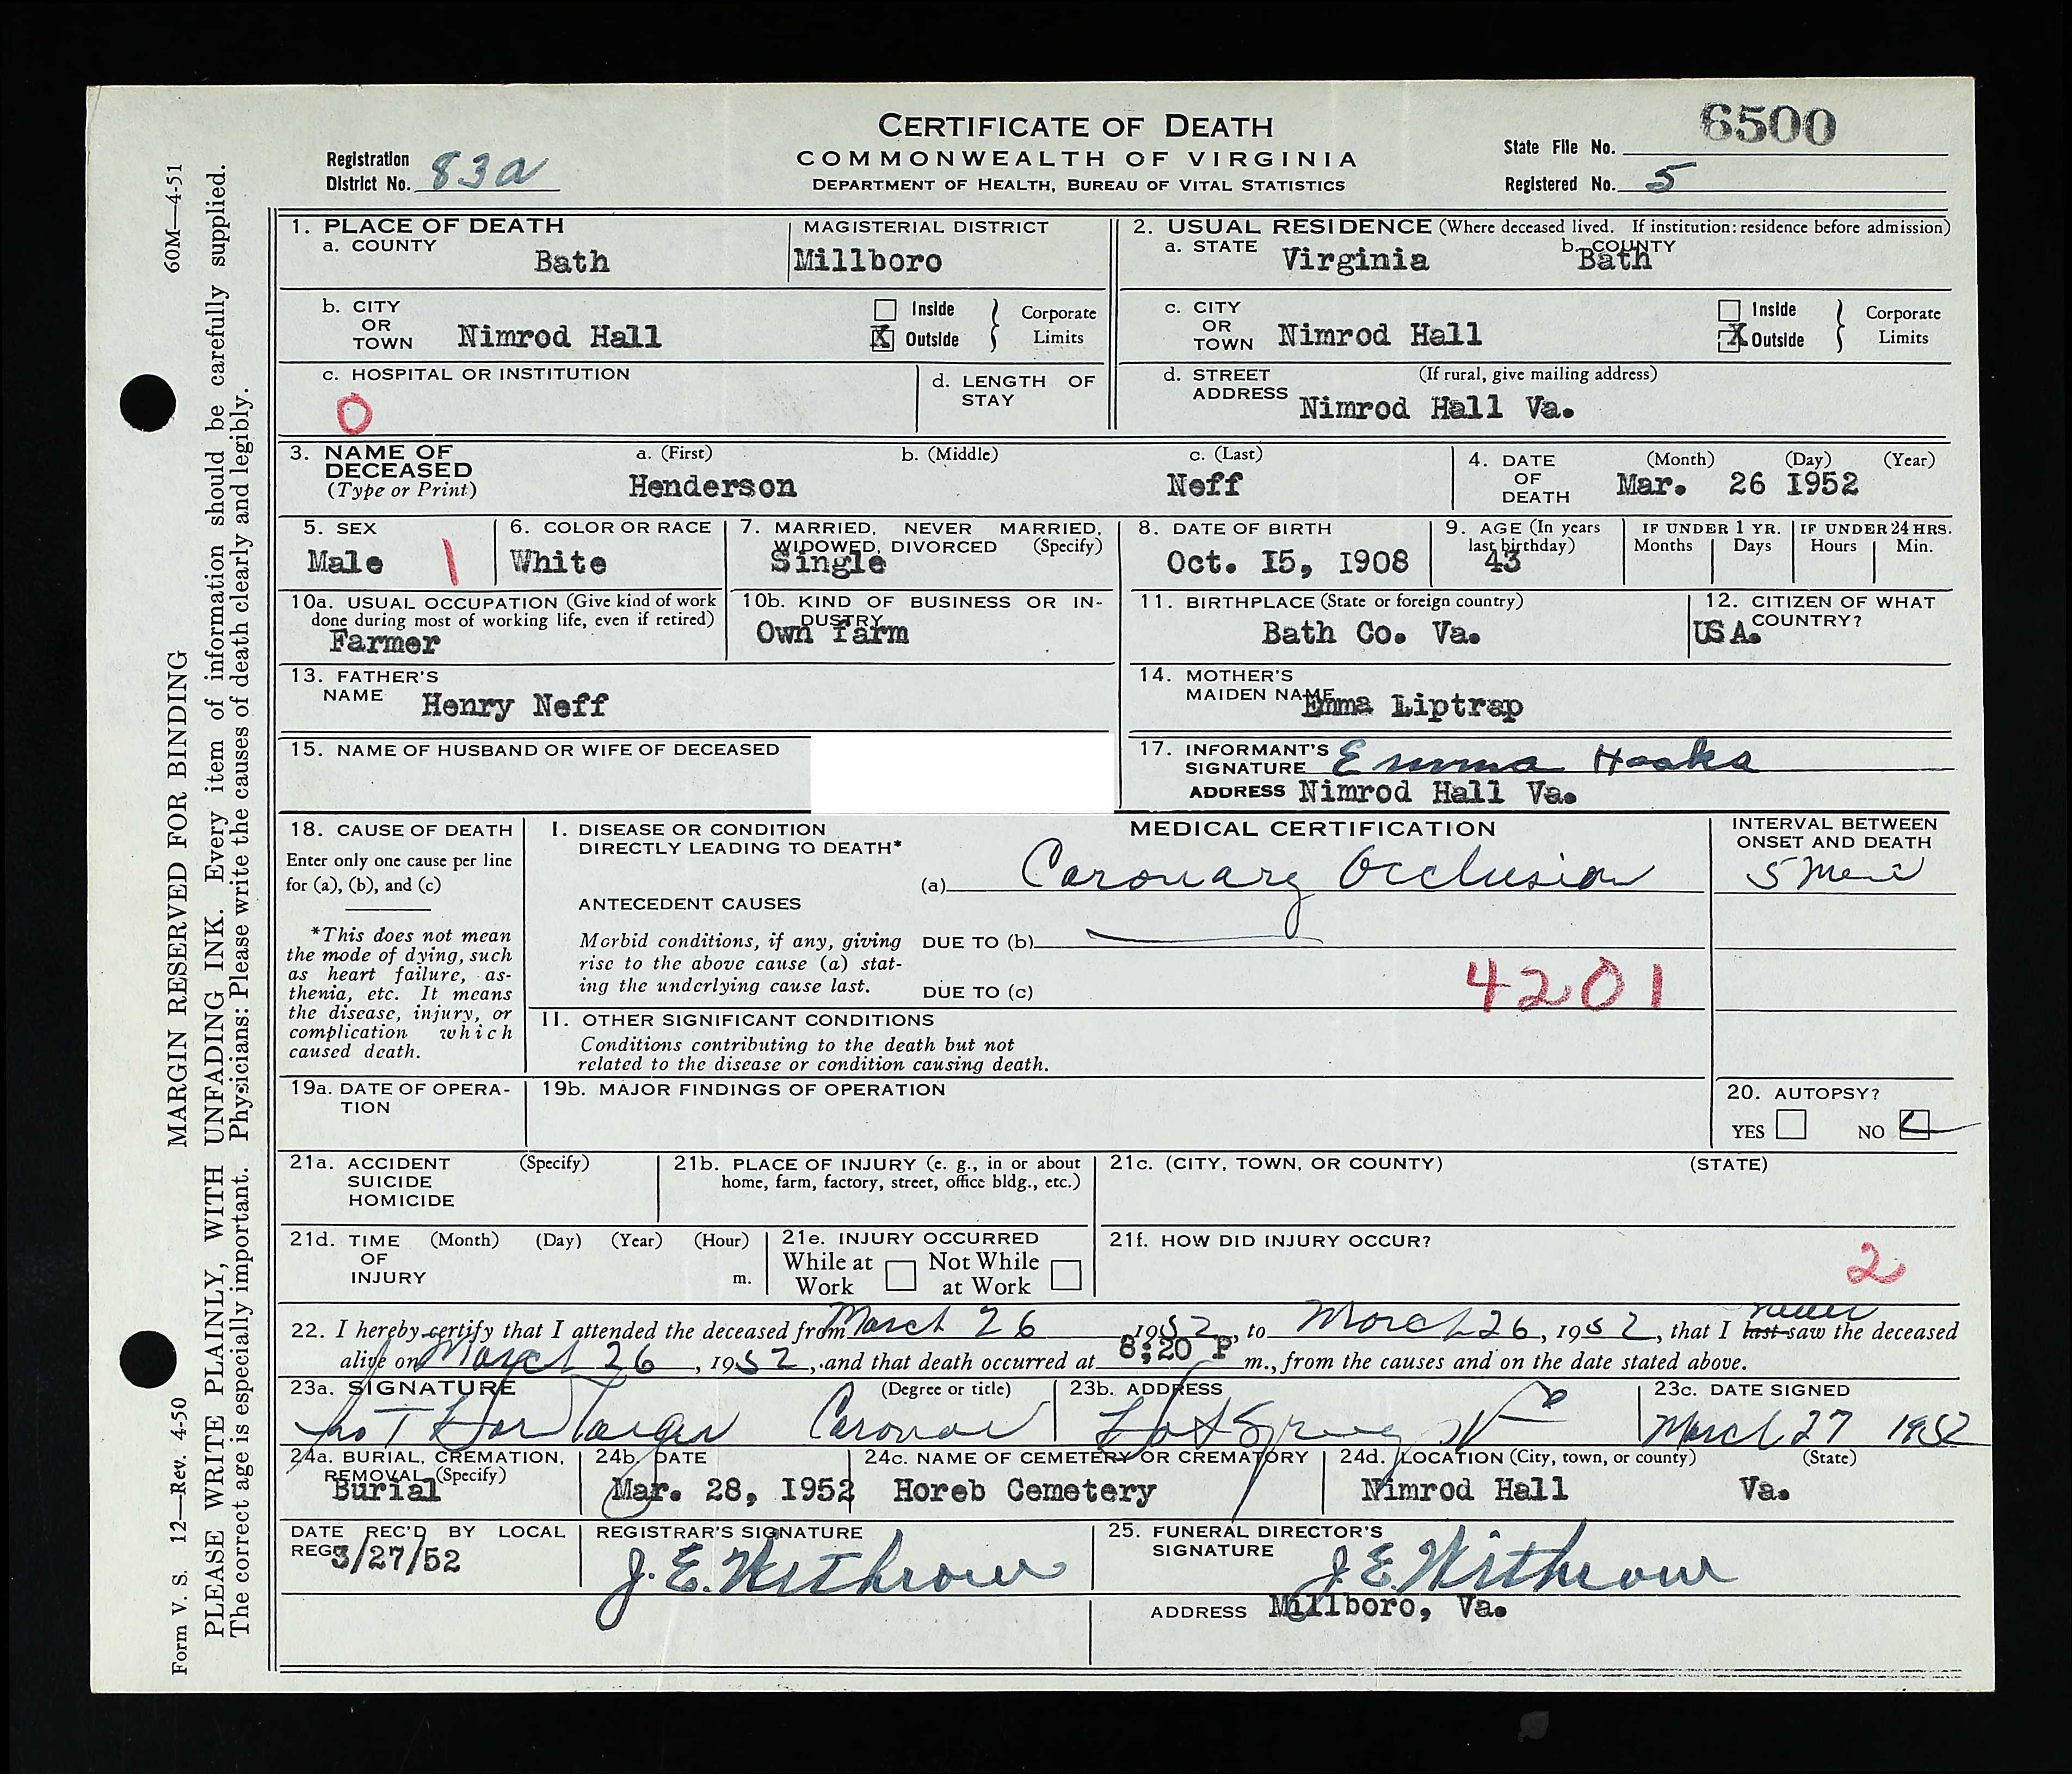 CERTIFICATE OF DEATH
COMMONWEALTH OF VIRGINIA
DEPARTMENT OF HEALTH, BUREAU OF VITAL STATISTICS
Registration District No. 83a
State File No. 6500
Registered No. 5
60M—4-51
MARGIN RESERVED FOR BINDING
PLEASE WRITE PLAINLY, WITH UNFADING INK. Every item of information should be carefully supplied.
The correct age is especially important. Physicians: Please write the causes of death clearly and legibly.
Form V. S. 12—Rev. 4-50
1. PLACE OF DEATH
a. COUNTY Bath
MAGISTERIAL DISTRICT Millboro
b. CITY OR TOWN Nimrod Hall
Inside
X Outside
Corporate Limits
c. HOSPITAL OR INSTITUTION
0
d. LENGTH OF STAY
2. USUAL RESIDENCE (Where deceased lived. If institution: residence before admission)
a. STATE Virginia
b. COUNTY Bath
c. CITY OR TOWN Nimrod Hall
Inside
X Outside
Corporate Limits
d. STREET ADDRESS (If rural, give mailing address)
Nimrod Hall Va.
3. NAME OF DECEASED (Type or Print)
a. (First) Henderson
b. (Middle)
c. (Last) Neff
4. DATE OF DEATH (Month) (Day) (Year)
Mar. 26 1952
5. SEX Male 1
6. COLOR OR RACE White
7. MARRIED, NEVER MARRIED, WIDOWED, DIVORCED (Specify)
Single
8. DATE OF BIRTH
Oct. 15, 1908
9. AGE (In years last birthday) 43
IF UNDER 1 YR. Months Days
IF UNDER 24 HRS. Hours Min.
10a. USUAL OCCUPATION (Give kind of work done during most of working life, even if retired)
Farmer
10b. KIND OF BUSINESS OR INDUSTRY
Own farm
11. BIRTHPLACE (State or foreign country)
Bath Co. Va.
12. CITIZEN OF WHAT COUNTRY?
USA.
13. FATHER'S NAME Henry Neff
14. MOTHER'S MAIDEN NAME Emma Liptrap
15. NAME OF HUSBAND OR WIFE OF DECEASED
17. INFORMANT'S SIGNATURE Emma Hooks
ADDRESS Nimrod Hall Va.
18. CAUSE OF DEATH
Enter only one cause per line for (a), (b), and (c)
*This does not mean the mode of dying, such as heart failure, asthenia, etc. It means the disease, injury, or complication which caused death.
MEDICAL CERTIFICATION
I. DISEASE OR CONDITION DIRECTLY LEADING TO DEATH*
(a) Coronary Occlusion
INTERVAL BETWEEN ONSET AND DEATH
5 min
ANTECEDENT CAUSES
Morbid conditions, if any, giving rise to the above cause (a) stating the underlying cause last.
DUE TO (b)
DUE TO (c)
4201
II. OTHER SIGNIFICANT CONDITIONS
Conditions contributing to the death but not related to the disease or condition causing death.
19a. DATE OF OPERATION
19b. MAJOR FINDINGS OF OPERATION
20. AUTOPSY?
YES NO
21a. ACCIDENT SUICIDE HOMICIDE (Specify)
21b. PLACE OF INJURY (e. g., in or about home, farm, factory, street, office bldg., etc.)
21c. (CITY, TOWN, OR COUNTY) (STATE)
21d. TIME OF INJURY (Month) (Day) (Year) (Hour) m.
21e. INJURY OCCURRED
While at Work Not While at Work
21f. HOW DID INJURY OCCUR?
2
22. I hereby certify that I attended the deceased from March 26 1952, to March 26, 1952, that I last never saw the deceased
alive on March 26, 1952, and that death occurred at 8:20 P m., from the causes and on the date stated above.
23a. SIGNATURE (Degree or title)
Coronor
23b. ADDRESS
Hot Springs Va
23c. DATE SIGNED
March 27 1952
24a. BURIAL, CREMATION, REMOVAL (Specify)
Burial
24b. DATE
Mar. 28, 1952
24c. NAME OF CEMETERY OR CREMATORY
Horeb Cemetery
24d. LOCATION (City, town, or county) (State)
Nimrod Hall Va.
DATE REC'D BY LOCAL REG.
3/27/52
REGISTRAR'S SIGNATURE
J. E. Withrow
25. FUNERAL DIRECTOR'S SIGNATURE
J. E. Withrow
ADDRESS Millboro, Va.